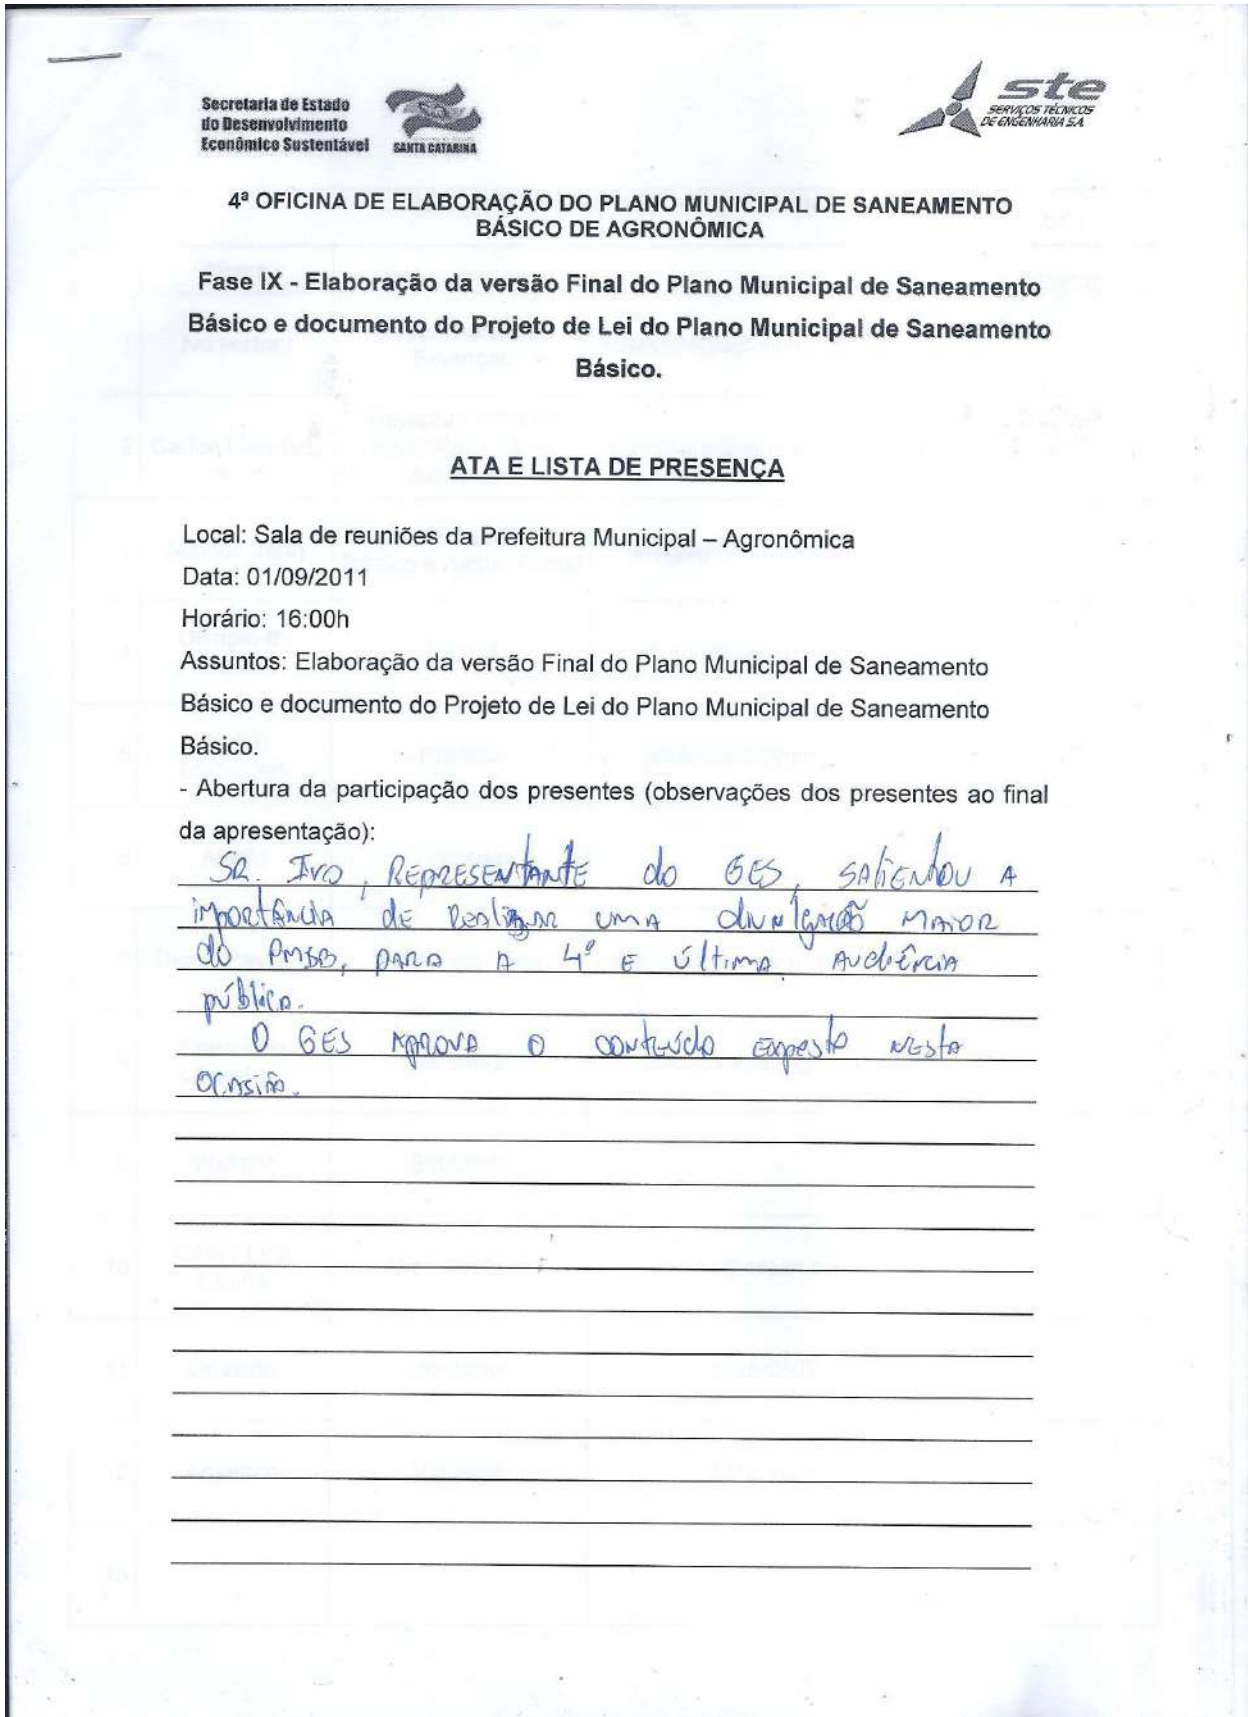 Secretaria de Estado
do Desenvolvimento
Econômico Sustentável
SANTA CATARINA
ste
SERVIÇOS TÉCNICOS
DE ENGENHARIA S.A.
4ª OFICINA DE ELABORAÇÃO DO PLANO MUNICIPAL DE SANEAMENTO
BÁSICO DE AGRONÔMICA
Fase IX - Elaboração da versão Final do Plano Municipal de Saneamento
Básico e documento do Projeto de Lei do Plano Municipal de Saneamento
Básico.
ATA E LISTA DE PRESENÇA
Local: Sala de reuniões da Prefeitura Municipal – Agronômica
Data: 01/09/2011
Horário: 16:00h
Assuntos: Elaboração da versão Final do Plano Municipal de Saneamento
Básico e documento do Projeto de Lei do Plano Municipal de Saneamento
Básico.
- Abertura da participação dos presentes (observações dos presentes ao final
da apresentação):
SR. IVO, REPRESENTANTE do GES, SALIENTOU A
importÂNCIA de REALIZAR UMA divulgação MAIOR
do PMSB, PARA A 4ª E última Audiência
pública.
O GES APROVA O CONTEÚDO EXPOSTO NESTA
OCASIÃO.